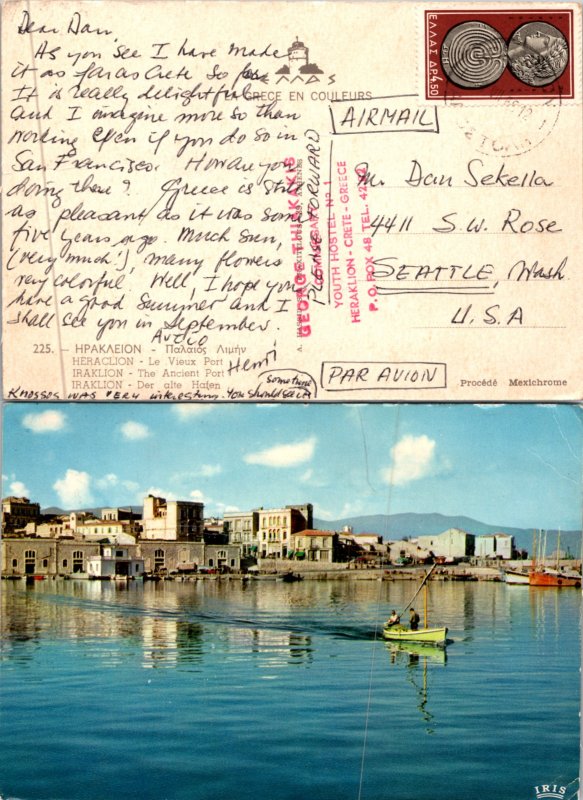 Dear Dan,
As you see I have made
it as far as Crete so far
It is really delightful
and I imagine more so than
working even if you do so in
San Francisco. How are you
doing there? Greece is still
as pleasant as it was some
five years ago. Much sun,
(very much!), many flowers
very colorful. Well, I hope you
have a good summer and I
shall see you in September.
Henri
KNOSSOS WAS VERY interesting. You should see it
sometime
ΕΛΛΑΣ
LA GRECE EN COULEURS
ΕΛΛΑΣ ΔΡ. 4,50
AIRMAIL
PLEASE FORWARD
GEORGE THILKAKIS
YOUTH HOSTEL Nº 1
HERAKLION - CRETE - GREECE
P.O. BOX 48 TEL.
Mr. Dan Sekella
4411 S.W. Rose
SEATTLE, Wash.
U.S.A
PAR AVION
225. — ΗΡΑΚΛΕΙΟΝ - Παλαιός Λιμήν
HERACLION - Le Vieux Port
IRAKLION - The Ancient Port
IRAKLION - Der alte Hafen
Procédé Mexichrome
IRIS